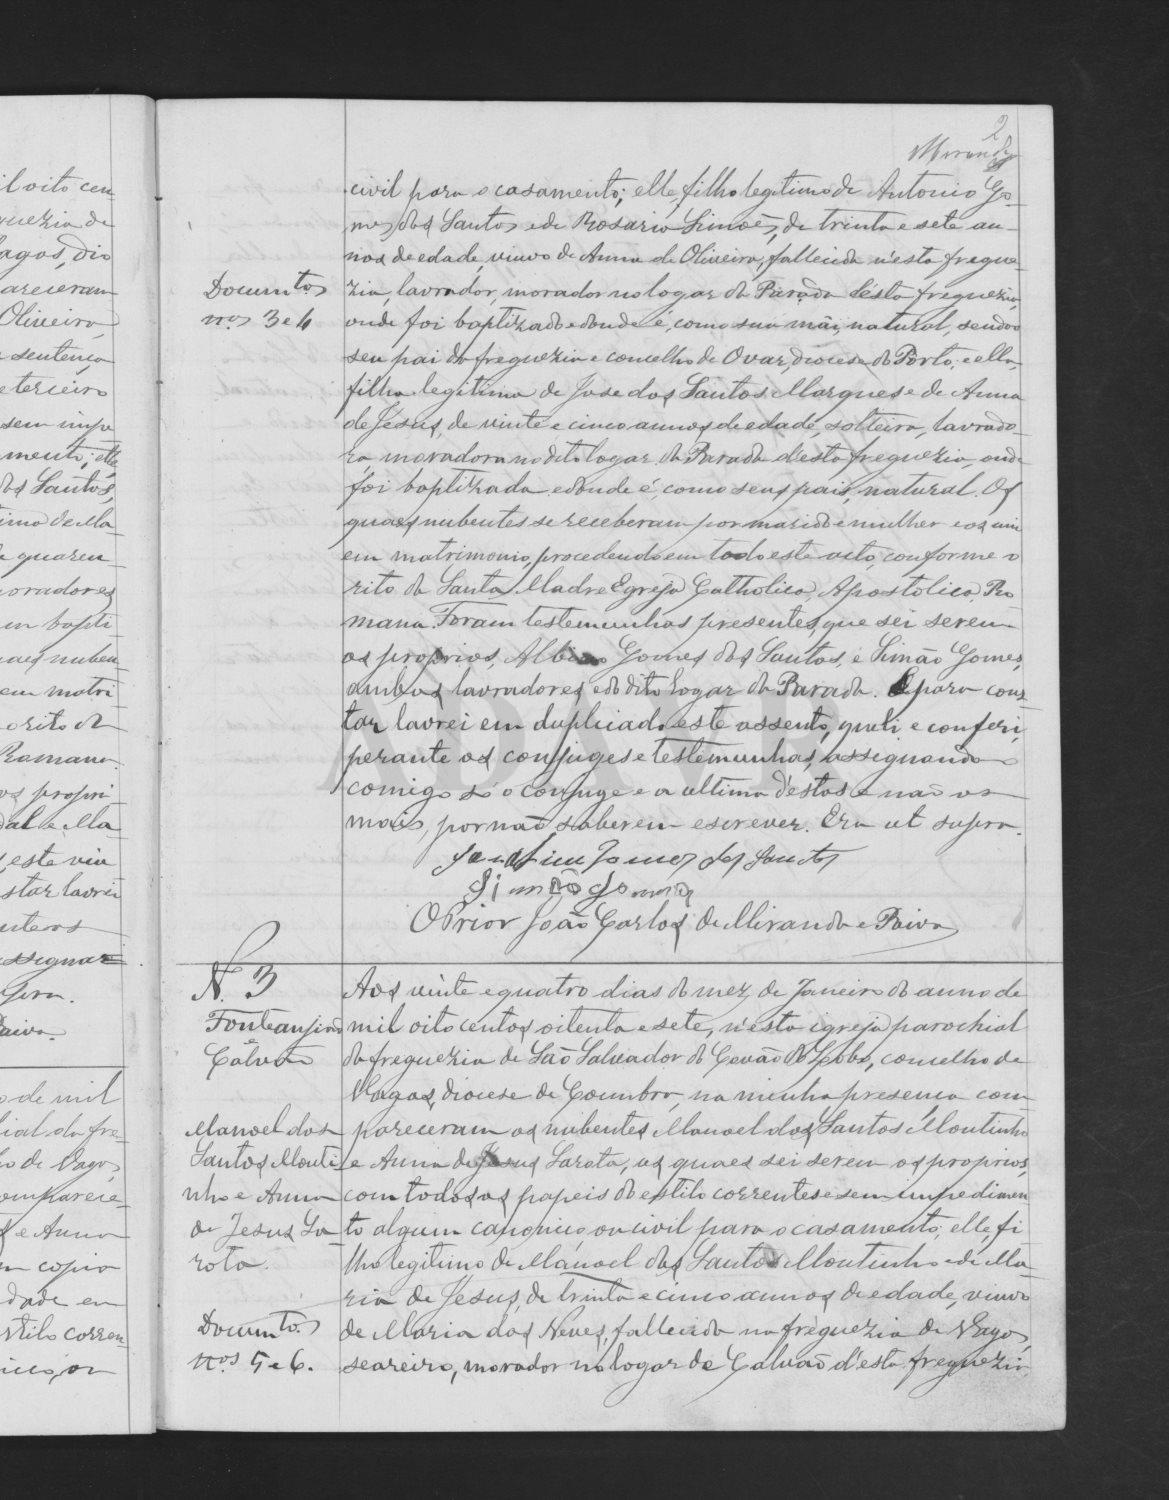 2
Miranda
civil para o casamento; elle, filho legitimo de Antonio Go-
mes dos Santos e de Rosario Simoes, de trinta e sete an-
nos de edade, viuvo de Anna de Oliveira, fallecida n'esta fregue-
zia, lavrador, morador no logar da Parada d'esta freguezia,
onde foi baptizado e donde é, como sua mãi, natural, sendo o
seu pai da freguezia e concelho de Ovar, diocese do Porto; e ella,
filha legitima de Jose dos Santos Marques e de Anna
de Jesus, de vinte e cinco annos de edade, solteira, lavrado-
ra, moradora no dito logar da Parada d'esta freguezia, onde
foi baptizada e donde é, como seus pais, natural. Os
quaes nubentes se receberam por marido e mulher e os uni
em matrimonio, procedendo em todo este acto, conforme o
rito da Santa Madre Egreja Catholica, Apostolica, Ro
mana. Foram testemunhas presentes, que sei serem
os proprios, Albino Gomes dos Santos, e Simão Gomes,
ambos lavradores e do dito logar da Parada. E para cons-
tar lavrei em duplicado este assento, que li e conferi,
perante os conjuges e testemunhas, assignando
comigo só o conjuge e a ultima d'estas e nao os
mais, por nao saberem escrever. Era ut supra.
Gomes dos Santos
Simão Gomes
O Prior João Carlos de Miranda e Paiva
Documtos
nos 3 e 4
N. 3
e
Calvão
Manoel dos
Santos Mouti-
nho e Anna
de Jesus Sa-
rota.
Documtos
nos 5 e 6.
Aos vinte e quatro dias do mez de Janeiro do anno de
mil oito centos oitenta e sete, n'esta igreja parochial
da freguezia de São Salvador do Covão do Lobo, concelho de
Vagos, diocese de Coimbra, na minha presença com-
pareceram os nubentes Manoel dos Santos Moutinho
e Anna de Jesus Sarota, os quaes sei serem os proprios,
com todos os papeis do estilo correntes e sem impedimen-
to algum canonico, ou civil para o casamento; elle, fi
lho legitimo de Manoel dos Santos Moutinho e de Ma-
ria de Jesus, de trinta e cinco annos de edade, viuvo
de Maria das Neves, fallecida na freguezia de Vagos,
seareiro, morador no logar de Calvão d'esta freguezia